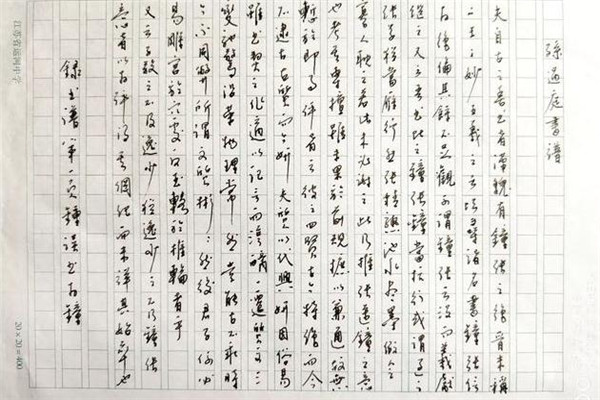 孫過庭書譜
夫自古之善書者漢魏有鐘張之絶晉末稱
二王之妙王羲之云頃尋諸名書鐘張信
为绝倫其餘不足觀可謂鐘張云没而羲獻
继之又云吾書比之鐘張鐘當抗行或謂過之
張草猶當雁行然張精熟池水盡墨假令
寡人耽之若此未必謝之此乃推張邁鐘之意
也考其專擅雖未果於前規摭以兼通故無
慙於即事評者云彼之四賢古今特絶而今
不逮古古質而今妍夫質以代興妍因俗易
雖書契之作適以記言而淳醨一遷質文三
變馳騖沿革物理常然貴能古不乖時
今不同弊所謂文質彬彬然後君子何必
易雕宮於穴處反玉輅於椎輪者乎
又云子敬之不及逸少猶逸少之不及鐘張
意者以为評得其綱紀而未詳其始卒也
錄書譜第一頁鍾誤書为鐘
20×20=400